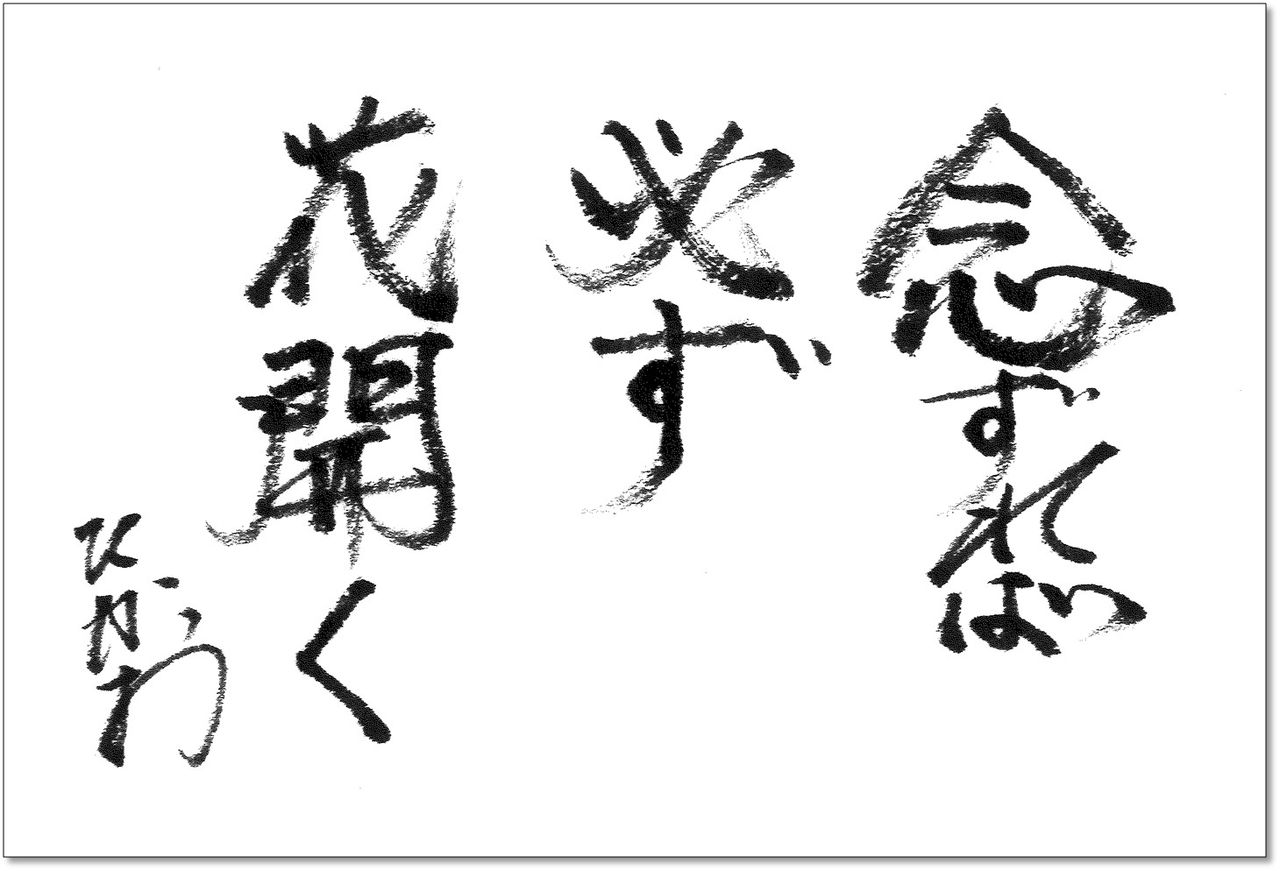 念ずれば
必ず
花開く
ひがわ